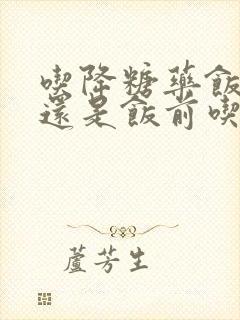 喫降糖藥飯
還是飯前喫
蘆芳生